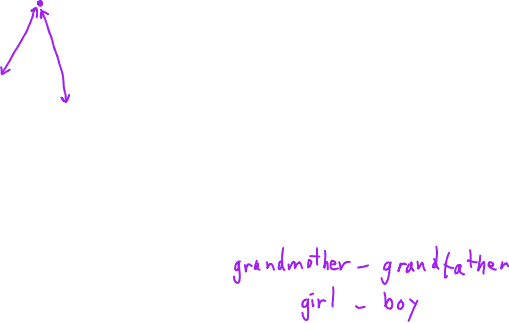 grandmother - grandfather
girl - boy